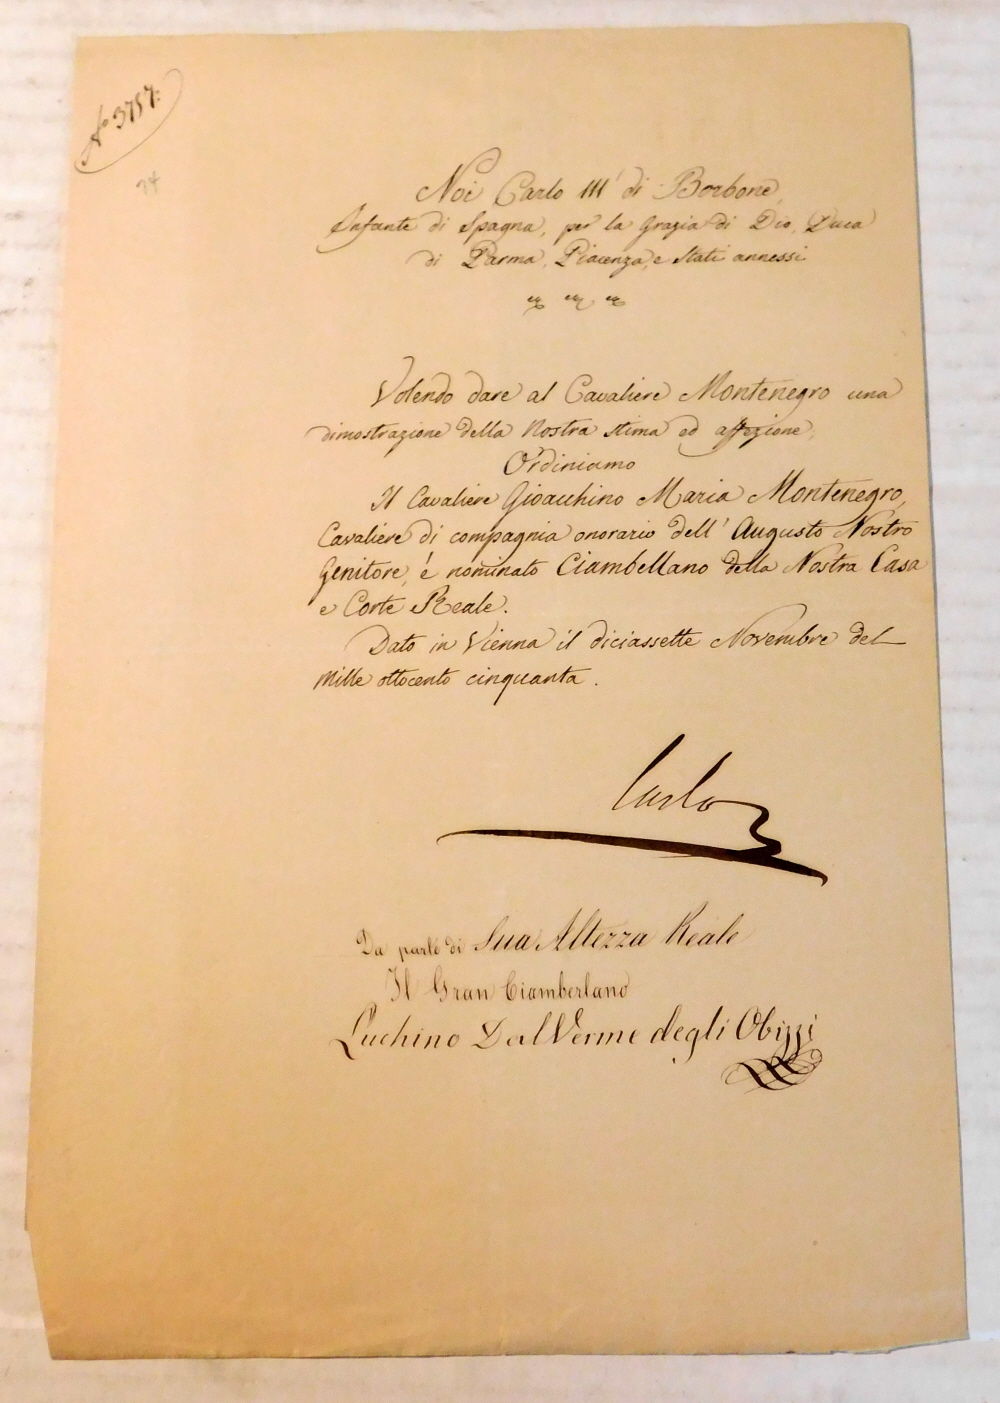 N.o 3757.
34
Noi Carlo III di Borbone,
Infante di Spagna, per la Grazia di Dio, Duca
di Parma, Piacenza, e Stati annessi
Volendo dare al Cavaliere Montenegro una
dimostrazione della Nostra stima ed affezione,
Ordiniamo
Il Cavaliere Gioacchino Maria Montenegro,
Cavaliere di compagnia onorario dell' Augusto Nostro
Genitore, é nominato Ciambellano della Nostra Casa
e Corte Reale.
Dato in Vienna il diciassette Novembre del
Mille ottocento cinquanta.
Carlo
Da parte di Sua Altezza Reale
Il Gran Ciamberlano
Luchino Dal Verme degli Obizzi